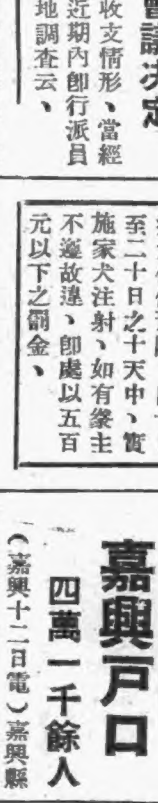 會議決定
收支情形、當經
近期內卽行派員
地調查云、
至二十日之十天中、實
施家犬注射、如有豢主
不遵故違、卽處以五百
元以下之罰金、
嘉興戶口
四萬一千餘人
(嘉興十二日電)嘉興縣